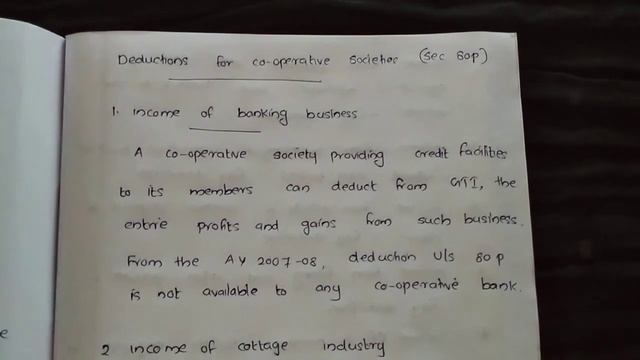 Deductions for co-operative societies (sec 80p)
1. Income of banking business
A co-operative society providing credit facilities
to its members can deduct from GTI, the
entrie profits and gains from such business.
From the AY 2007-08, deduction U/s 80p
is not available to any co-operative bank.
2 Income of cottage industry
e